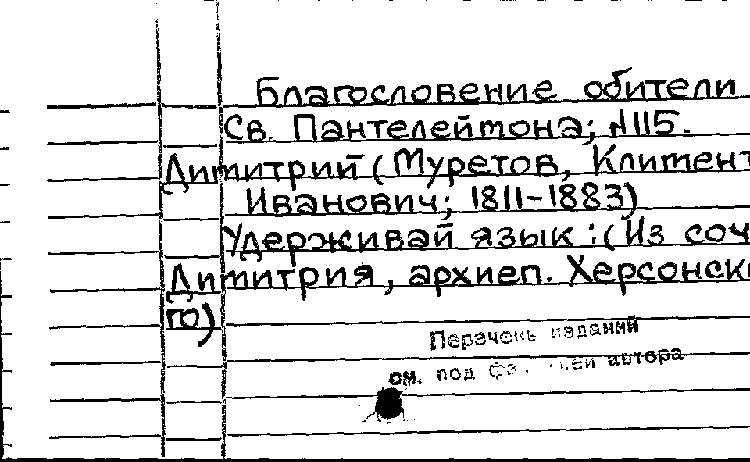 Благословение обители
Св. Пантелеймона; №115.
Димитрий (Муретов, Климент
Иванович; 1811-1883)
Удерживай язык: (Из соч
Димитрия, архиеп. Херсонск
го)
Перечень изданий
см. под автора